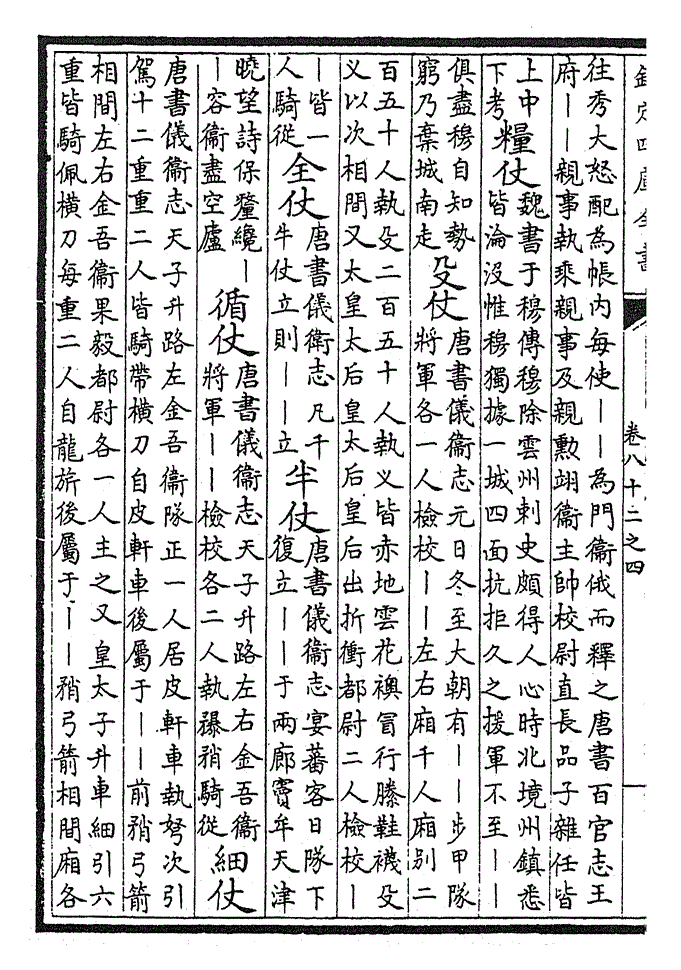 欽定四庫全書
卷八十二之四
往秀大怒配為帳内每使——為門衛俄而釋之唐書百官志王
府——親事執乘親事及親勲翊衛主帥校尉直長品子雜任皆
上中
下考
糧仗
魏書于穆傳穆除雲州刺史頗得人心時北境州鎮悉
皆淪没惟穆獨據一城四面抗拒久之援軍不至——
俱盡穆自知勢
窮乃棄城南走
殳仗
唐書儀衛志元日冬至大朝有——步甲隊
將軍各一人檢校——左右廂千人廂别二
百五十人執殳二百五十人執义皆赤地雲花襖冒行縢鞋襪殳
义以次相間又太皇太后皇太后皇后出折衝都尉二人檢校—
—皆一
人騎從
全仗
唐書儀衛志凡千
牛仗立則——立
半仗
唐書儀衛志宴蕃客日隊下
復立——于兩廊竇牟天津
曉望詩保釐纔—
—容衛盡空廬
循仗
唐書儀衛志天子升路左右金吾衛
將軍——檢校各二人執犦矟騎從
細仗
唐書儀衛志天子升路左金吾衛隊正一人居皮軒車執弩次引
駕十二重重二人皆騎帶橫刀自皮軒車後屬于——前矟弓箭
相間左右金吾衛果毅都尉各一人主之又皇太子升車細引六
重皆騎佩橫刀每重二人自龍旂後屬于——矟弓箭相間廂各